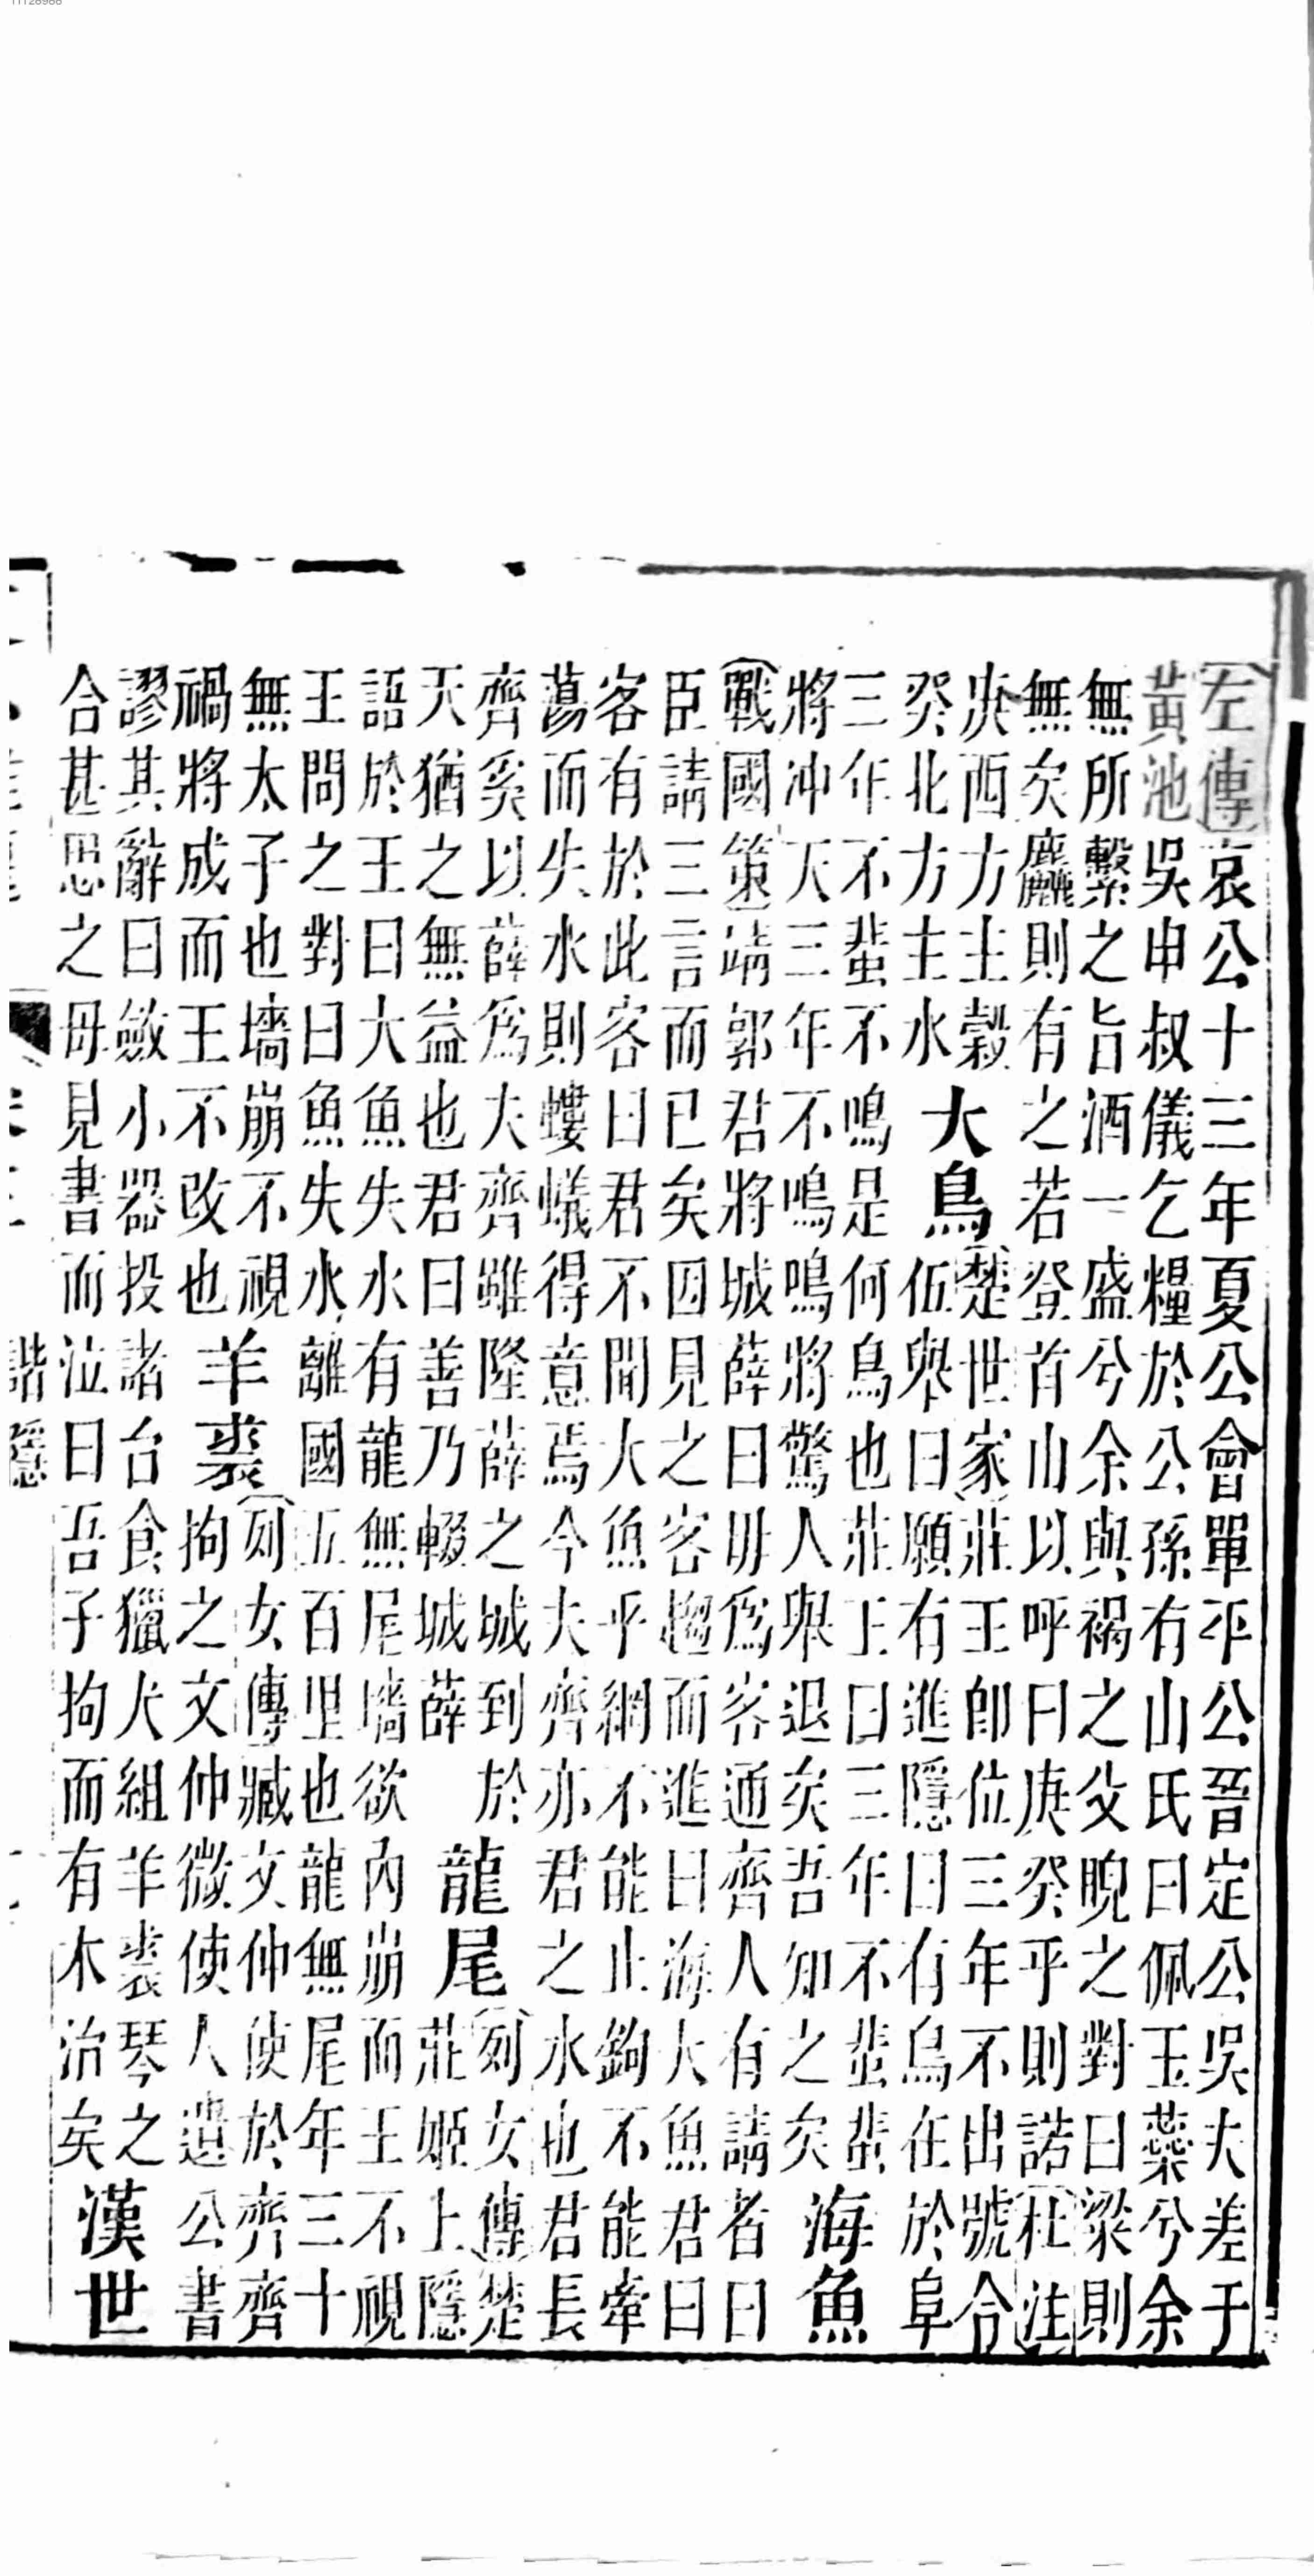 左傳哀公十三年夏公會單平公晉定公吳夫差于
黃池吳申叔儀乞糧於公孫有山氏曰佩玉蘂兮余
無所繫之旨酒一盛兮余與褐之父睨之對曰梁則
無矣麤則有之若登首山以呼曰庚癸乎則諾杜注
庚西方主穀
癸北方主水
大鳥
楚世家莊王卽位三年不出號合
伍舉曰願有進隱曰有鳥在於阜
三年不蜚不鳴是何鳥也莊王曰三年不蜚蜚
將沖天三年不鳴鳴將驚人舉退矣吾知之矣
海魚
戰國策靖郭君將城薛曰毋爲客通齊人有請者曰
臣請三言而已矣因見之客趨而進曰海大魚君曰
客有於此客曰君不聞大魚乎網不能止鉤不能牽
蕩而失水則螻蟻得意焉今夫齊亦君之水也君長
齊奚以薛爲夫齊雖隆薛之城到於
天猶之無益也君曰善乃輟城薛
龍尾
列女傳楚
莊姬上隱
語於王曰大魚失水有龍無尾墻欲內崩而王不視
王問之對曰魚失水離國五百里也龍無尾年三十
無太子也墻崩不視
禍將成而王不改也
羊裘
列女傳臧文仲使於齊齊
拘之文仲微使人遺公書
謬其辭曰斂小器投諸台食獵犬組羊裘琴之
合甚思之母見書而泣曰吾子拘而有木治矣
漢世
諧隱